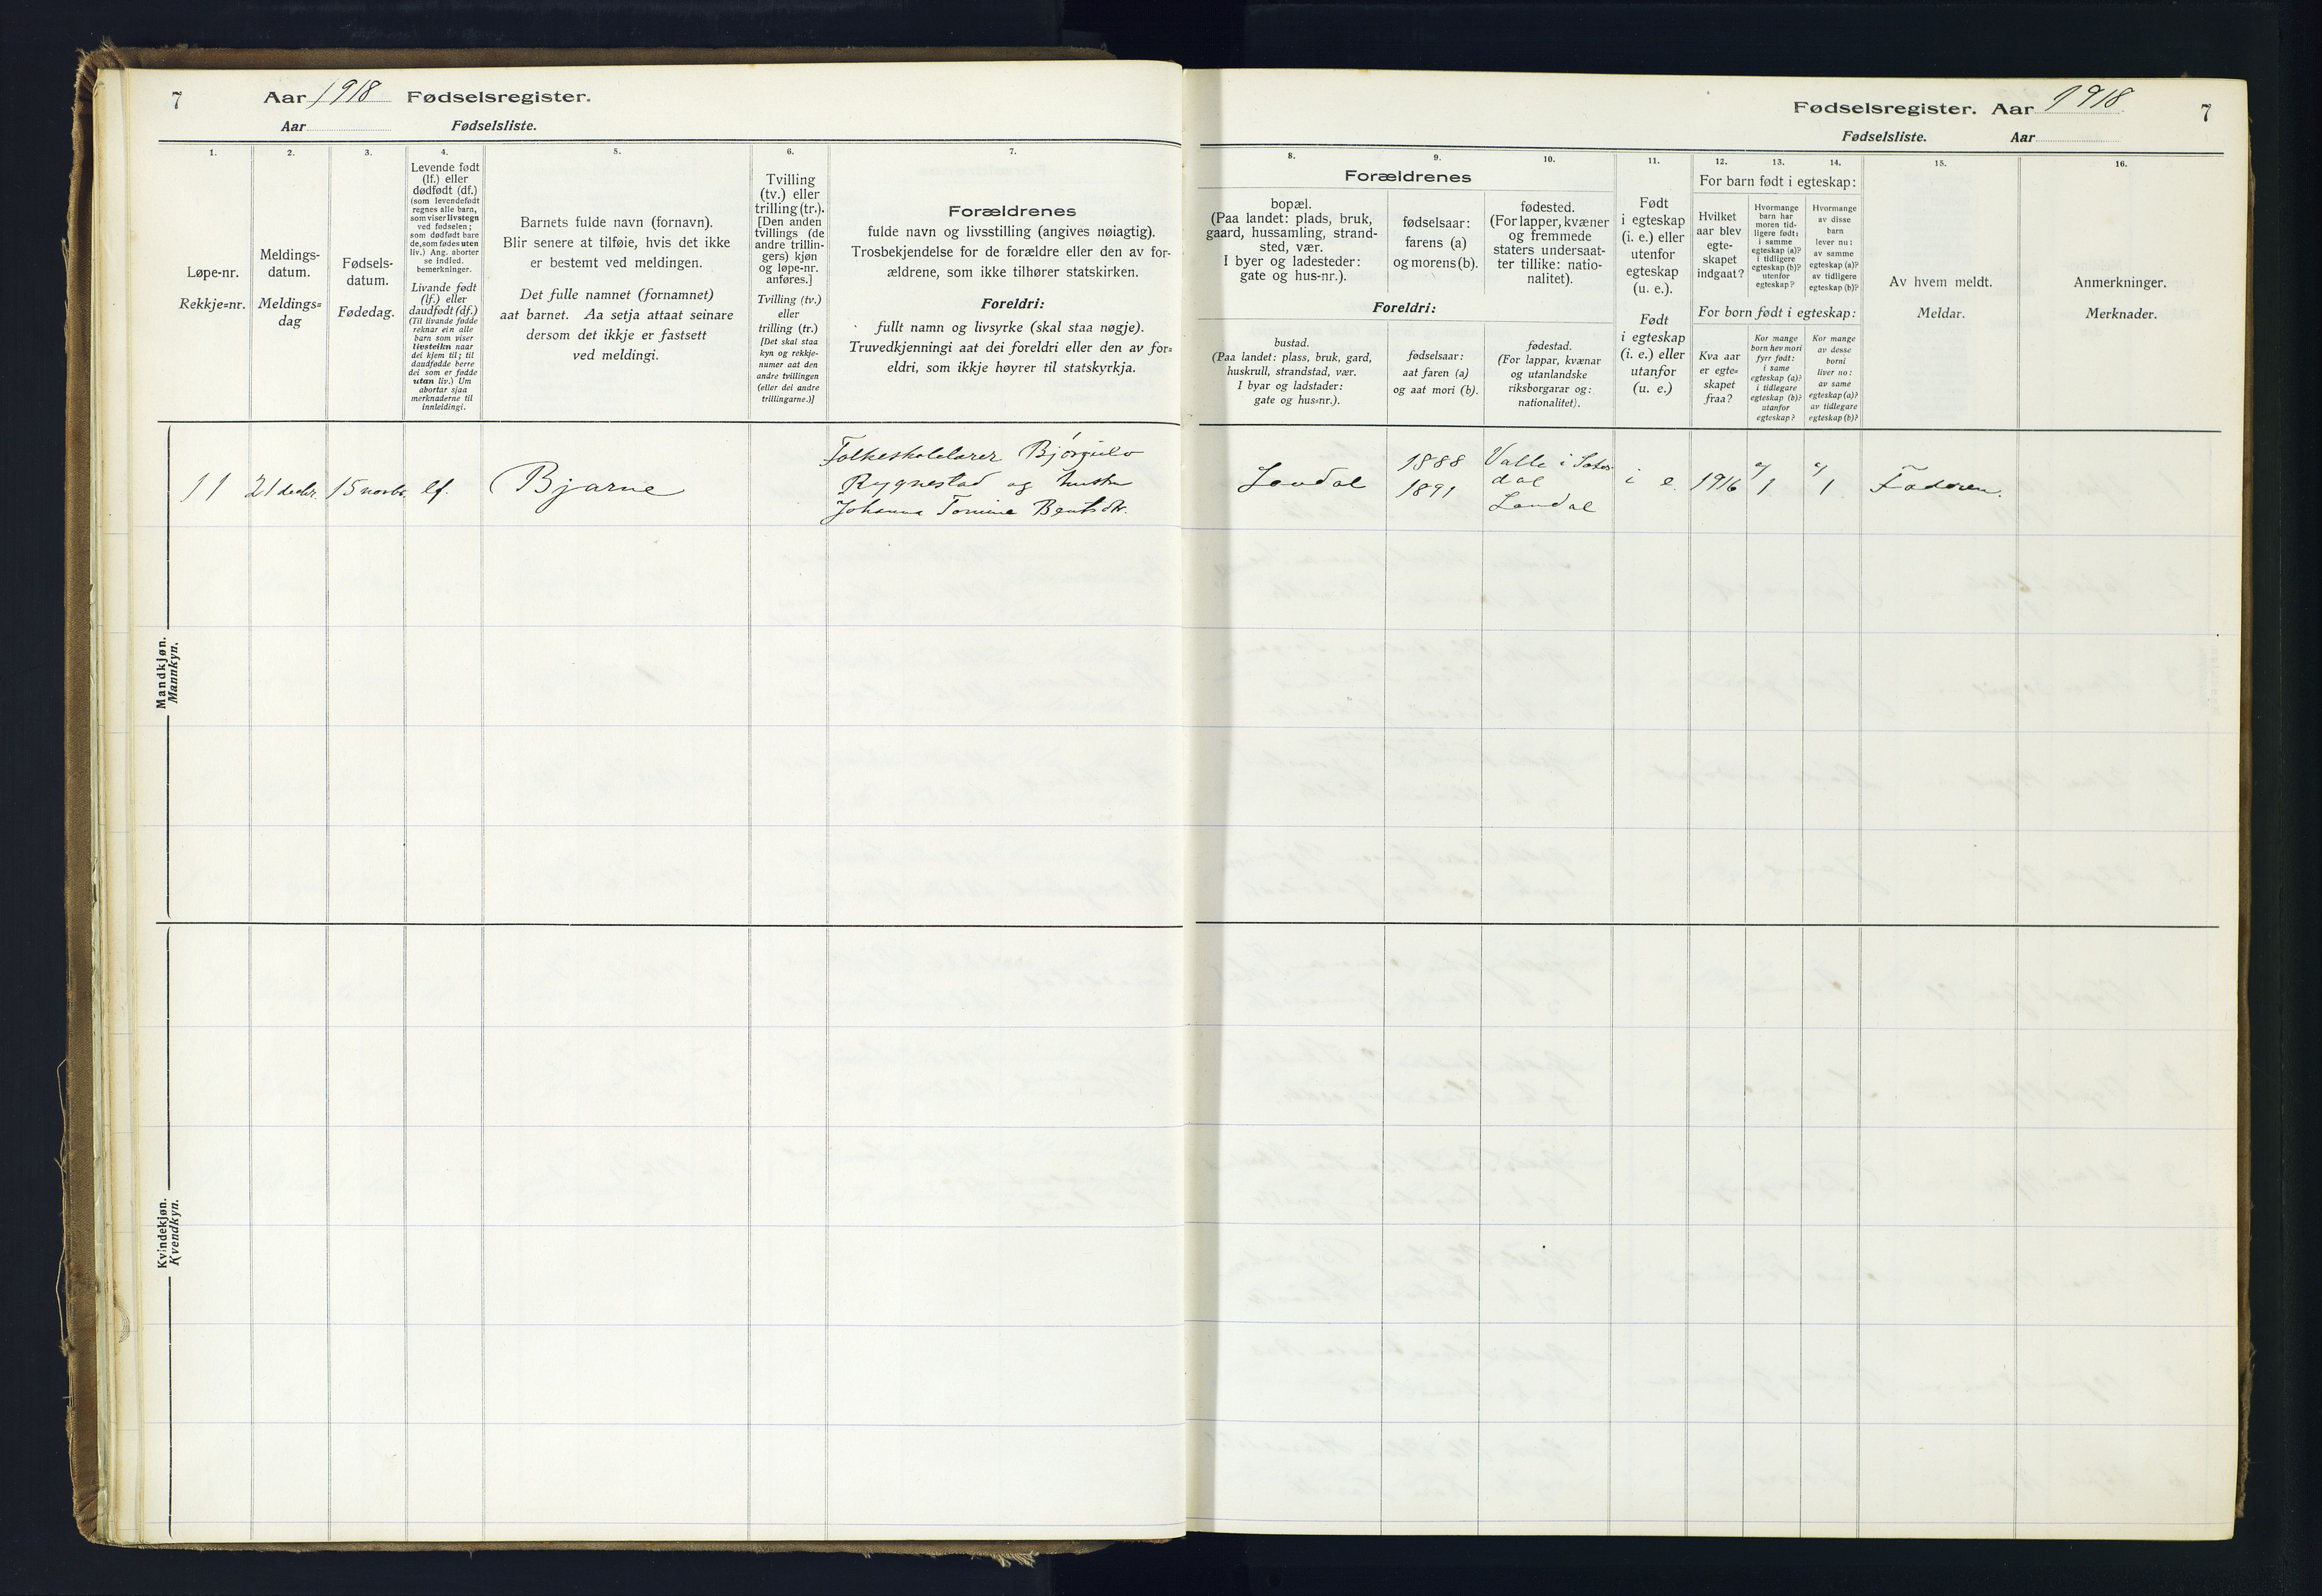 7
Aar 1918 Fødselsregister.
Aar Fødselsliste.
1.
Løpe-nr.
Rekkje=nr.
2.
Meldings-
datum.
Meldings=
dag
3.
Fødsels-
datum.
Fødedag.
4.
Levende født
(lf.) eller
dødfødt (df.)
(som levendefødt
regnes alle barn,
som viser livstegn
ved fødselen;
som dødfødt bare
de, som fødes uten
liv.) Ang. aborter
se indled.
bemerkninger.
Livande født
(lf.) eller
daudfødt (df.)
(Til livande fødde
reknar ein alle
barn som viser
livsteikn naar
dei kjem til; til
daudfødde berre
dei som er fødde
utan liv.) Um
abortar sjaa
merknaderne til
innleidingi.
5.
Barnets fulde navn (fornavn).
Blir senere at tilføie, hvis det ikke
er bestemt ved meldingen.
Det fulle namnet (fornamnet)
aat barnet. Aa setja attaat seinare
dersom det ikkje er fastsett
ved meldingi.
6.
Tvilling
(tv.) eller
trilling (tr.).
[Den anden
tvillings (de
andre trillin-
gers) kjøn
og løpe-nr.
anføres.]
Tvilling (tv.)
eller
trilling (tr.)
[Det skal staa
kyn og rekkje-
numer aat den
andre tvillingen
(eller dei andre
trillingarne.)]
7.
Forældrenes
fulde navn og livsstilling (angives nøiagtig).
Trosbekjendelse for de forældre eller den av for-
ældrene, som ikke tilhører statskirken.
Foreldri:
fullt namn og livsyrke (skal staa nøgje).
Truvedkjenningi aat dei foreldri eller den av for=
eldri, som ikkje høyrer til statskyrkja.
Mandkjøn.
Mannkyn.
11 21 decbr. 15 novbr. lf. Bjarne
Folkeskolelærer Bjørgulv
Rygnestad og hustru
Johanna Tomine Bentsdtr.
Kvindekjøn.
Kvendkyn.
Fødselsregister. Aar 1918. 7
Fødselsliste. Aar
Forældrenes
8.
bopæl.
(Paa landet: plads, bruk,
gaard, hussamling, strand-
sted, vær.
I byer og ladesteder:
gate og hus-nr.).
9.
fødselsaar:
farens (a)
og morens (b).
10.
fødested.
(For lapper, kvæner
og fremmede
staters undersaat-
ter tillike: natio-
nalitet).
Foreldri:
bustad.
(Paa landet: plass, bruk, gard,
huskrull, strandstad, vær.
I byar og ladstader:
gate og hus=nr.).
fødselsaar:
aat faren (a)
og aat mori (b).
fødestad.
(For lappar, kvænar
og utanlandske
riksborgarar og:
nationalitet).
11.
Født
i egteskap
(i. e.) eller
utenfor
egteskap
(u. e.).
Født
i egteskap
(i. e.) eller
utanfor
(u. e.)
For barn født i egteskap:
12.
Hvilket
aar blev
egte-
skapet
indgaat?
13.
Hvormange
barn har
moren tid-
ligere født:
i samme
egteskap (a)?
i tidligere
egteskap (b)?
utenfor
egteskap?
14.
Hvormange
av disse
barn
lever nu:
av samme
egteskap (a)?
av tidligere
egteskap (b)?
For born født i egteskap:
Kva aar
er egte=
skapet
fraa?
Kor mange
born hev mori
fyrr født:
i same
egteskap (a)?
i tidlegare
egteskap (b)?
utanfor
egteskap?
Kor mange
av desse
borni
liver no:
av same
egteskap (a)?
av tidlegare
egteskap (b)?
15.
Av hvem meldt.
Meldar.
16.
Anmerkninger.
Merknader.
Laudal
1888
1891
Valle i Sætes-
dal
Laudal
i e. 1916 a/1 a/1 Faderen.